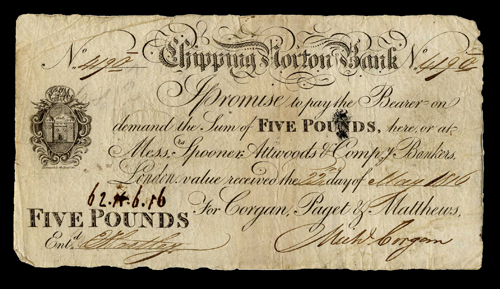 No. 4192 Chipping Norton Bank No. 4192
I Promise to pay the Bearer on
demand the Sum of FIVE POUNDS, here, or at
Messrs. Spooner, Attwoods & Compy. Bankers,
London, value received the 22d day of May 1816
62.#.6.16
FIVE POUNDS For Corgan, Paget & Matthews,
Entd. Richd. Corgan